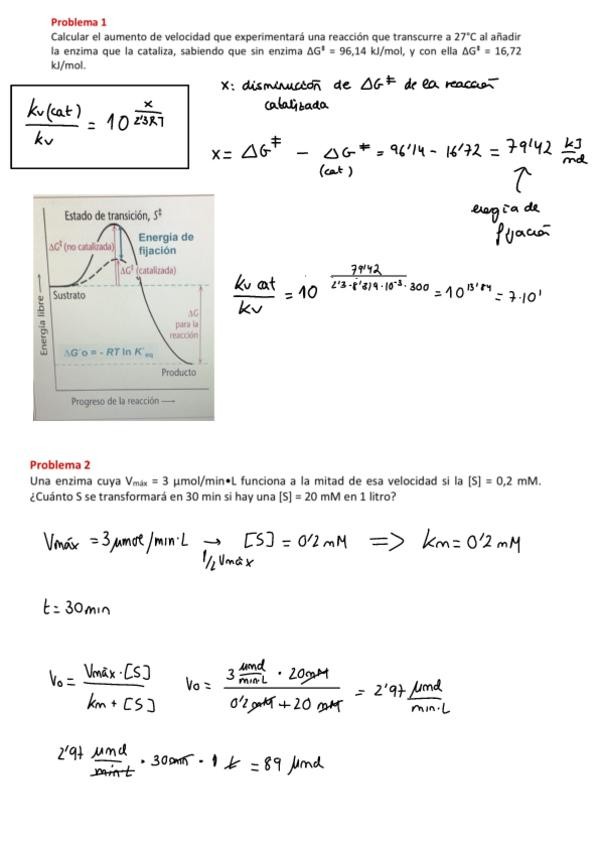 Problema 1
Calcular el aumento de velocidad que experimentará una reacción que transcurre a 27°C al añadir
la enzima que la cataliza, sabiendo que sin enzima ΔG‡ = 96,14 kJ/mol, y con ella ΔG‡ = 16,72
kJ/mol.
x: disminución de ΔG‡ de la reacción
catalizada
kv(cat)/kv = 10^(x/2'3RT)
x = ΔG‡ - ΔG‡ (cat) = 96'14 - 16'72 = 79'42 kJ/mol
energía de
fijación
Estado de transición, S‡
ΔG‡ (no catalizada)
Energía de
fijación
ΔG‡ (catalizada)
Sustrato
ΔG
para la
reacción
ΔG'o = - RT ln K'eq
Producto
Energía libre
Progreso de la reacción
kv cat/kv = 10^(79'42/2'3·8'319·10⁻³·300) = 10^13'84 = 7·10'
Problema 2
Una enzima cuya Vmáx = 3 µmol/min•L funciona a la mitad de esa velocidad si la [S] = 0,2 mM.
¿Cuánto S se transformará en 30 min si hay una [S] = 20 mM en 1 litro?
Vmáx = 3 µmol/min·L → 1/2 Vmáx [S] = 0'2 mM => km = 0'2 mM
t = 30 min
V₀ = Vmáx·[S]/km + [S] V₀ = 3 µmol/min·L · 20 mM/0'2 mM + 20 mM = 2'97 µmol/min·L
2'97 µmol/min·L · 30 min · 1 L = 89 µmol